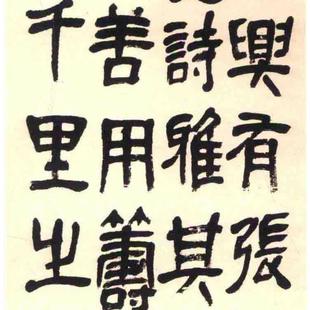 興有張
詩雅其
善用籌
千里之